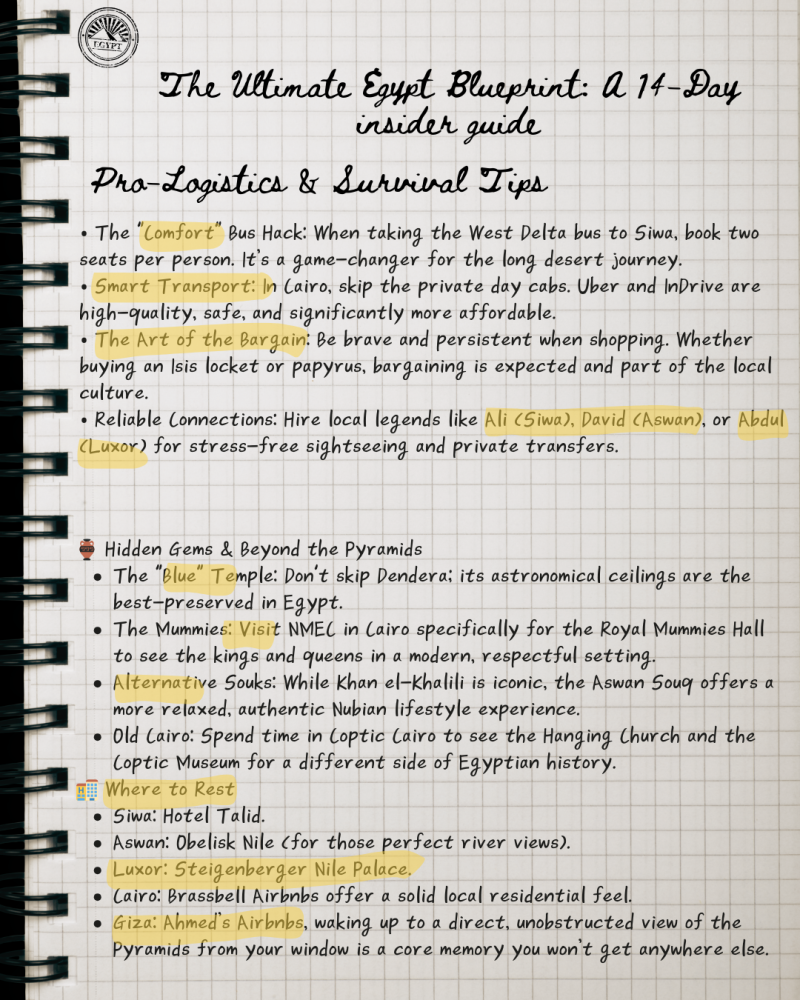 EGYPT
The Ultimate Egypt Blueprint: A 14-Day
insider guide
Pro-Logistics & Survival Tips
• The "Comfort" Bus Hack: When taking the West Delta bus to Siwa, book two
seats per person. It's a game-changer for the long desert journey.
• Smart Transport: In Cairo, skip the private day cabs. Uber and InDrive are
high-quality, safe, and significantly more affordable.
• The Art of the Bargain: Be brave and persistent when shopping. Whether
buying an Isis locket or papyrus, bargaining is expected and part of the local
culture.
• Reliable Connections: Hire local legends like Ali (Siwa), David (Aswan), or Abdul
(Luxor) for stress-free sightseeing and private transfers.
🏺 Hidden Gems & Beyond the Pyramids
• The "Blue" Temple: Don't skip Dendera; its astronomical ceilings are the
best-preserved in Egypt.
• The Mummies: Visit NMEC in Cairo specifically for the Royal Mummies Hall
to see the kings and queens in a modern, respectful setting.
• Alternative Souks: While Khan el-Khalili is iconic, the Aswan Souq offers a
more relaxed, authentic Nubian lifestyle experience.
• Old Cairo: Spend time in Coptic Cairo to see the Hanging Church and the
Coptic Museum for a different side of Egyptian history.
🏨 Where to Rest
• Siwa: Hotel Talid.
• Aswan: Obelisk Nile (for those perfect river views).
• Luxor: Steigenberger Nile Palace.
• Cairo: Brassbell Airbnbs offer a solid local residential feel.
• Giza: Ahmed's Airbnbs, waking up to a direct, unobstructed view of the
Pyramids from your window is a core memory you won't get anywhere else.